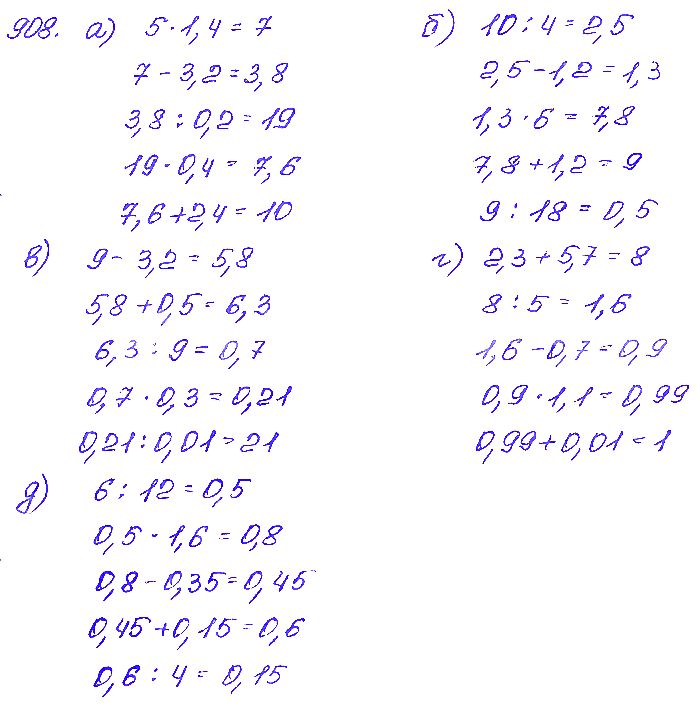 908. а) 5 · 1,4 = 7
7 - 3,2 = 3,8
3,8 : 0,2 = 19
19 · 0,4 = 7,6
7,6 + 2,4 = 10
б) 10 : 4 = 2,5
2,5 - 1,2 = 1,3
1,3 · 6 = 7,8
7,8 + 1,2 = 9
9 : 18 = 0,5
в) 9 - 3,2 = 5,8
5,8 + 0,5 = 6,3
6,3 : 9 = 0,7
0,7 · 0,3 = 0,21
0,21 : 0,01 = 21
г) 2,3 + 5,7 = 8
8 : 5 = 1,6
1,6 - 0,7 = 0,9
0,9 · 1,1 = 0,99
0,99 + 0,01 = 1
д) 6 : 12 = 0,5
0,5 · 1,6 = 0,8
0,8 - 0,35 = 0,45
0,45 + 0,15 = 0,6
0,6 : 4 = 0,15